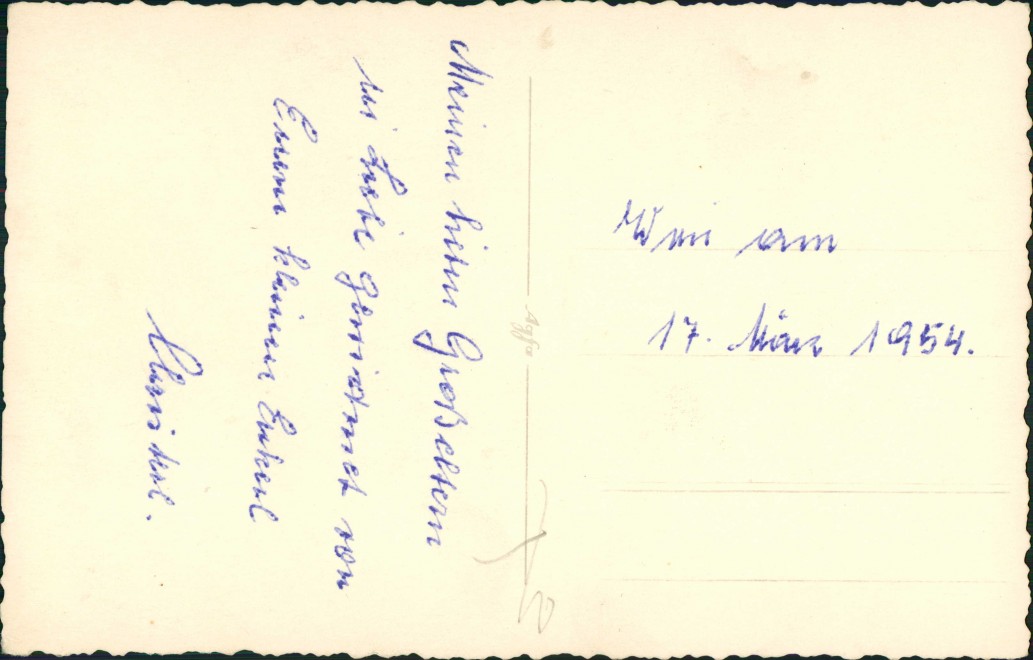 Meinen lieben Großeltern
in Liebe gewidmet von
Eurem kleinen Enkerl
Christerl.
Agfa
Wien am
17. März 1954.